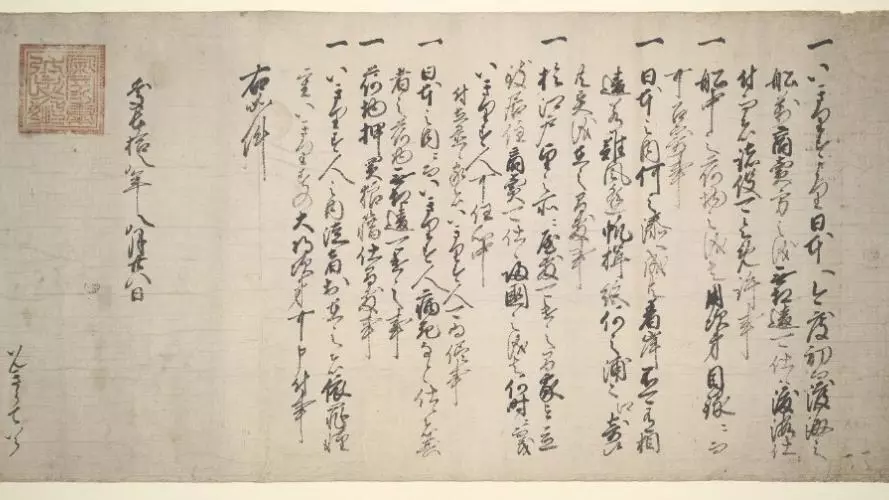 一 いきりすより日本へ今度初而渡海之
船萬商賣方之儀無相違可仕候渡海仕
付而者諸役可令免許事
一 船中之荷物之儀ハ用次第目録ニ而
可召寄事
一 日本之内何之湊へ成共着岸不可有相
違若難風逢帆楫絶何之浦々へ寄候
共異儀有之間敷事
一 於江戸望之所ニ屋敷可遣之間家を立
致居住商賣可仕候帰國之儀ハ何時ニ而茂
いきりす人可任心中
付立置候家者いきりす人可為儘事
一 日本之内ニ而いきりす人病死なと仕候者其
者之荷物無相違可遣之事
一 荷物押買狼藉仕間敷事
一 いきりす人之内徒者於有之者依罪軽
重いきりすの大将次第可申付事
右如件
慶長拾八年八月廿八日
いんきらていら